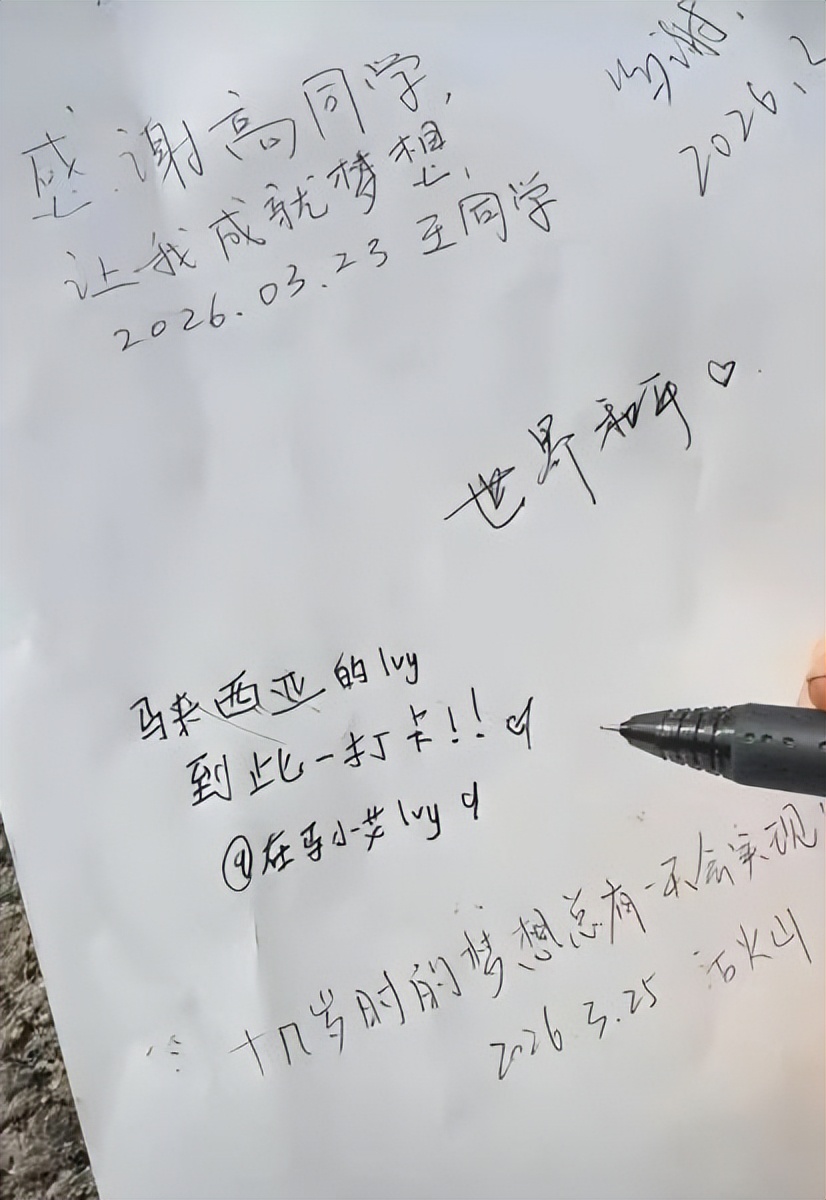 感谢高同学,
让我成就梦想,
2026.03.23 王同学
2026.2
世界和平♡.
马来西亚的Ivy
到此一打卡!!
@在马小艾Ivy
十几岁时的梦想总有一天会实现
2026.3.25 活火山